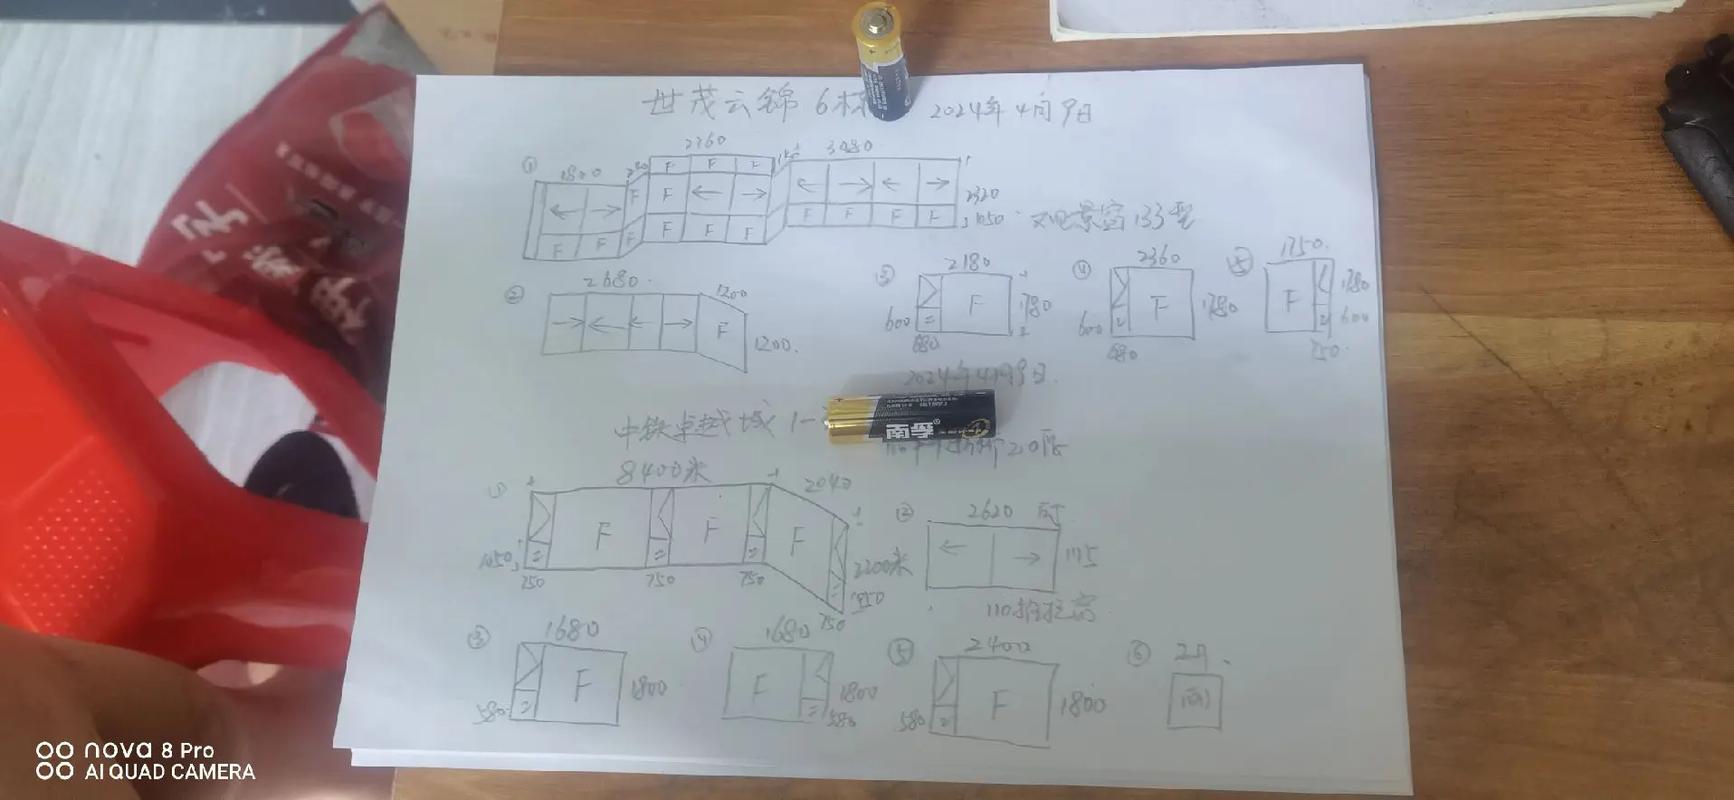 世茂云锦 6栋 2024年4月9日
① 1800 2360 3480
F F F
F F
F F F F F F F F F F
2320
1050 观景窗 133型
② 2680 1200
F
1200
③ 2180
F
1780
600
680
④ 2360
F
1780
600
680
⑤ 1750
F
1780
600
750
2024年4月9日
中铁卓越城 1-
① 8400米 2040
F F F
1050
750 750 750
2200米
1050
750
② 2620
1175
110推拉窗
③ 1680
F
1800
580
④ 1680
F
1800
580
⑤ 2400
F
1800
580
⑥
春雨
nova 8 Pro
AI QUAD CAMERA